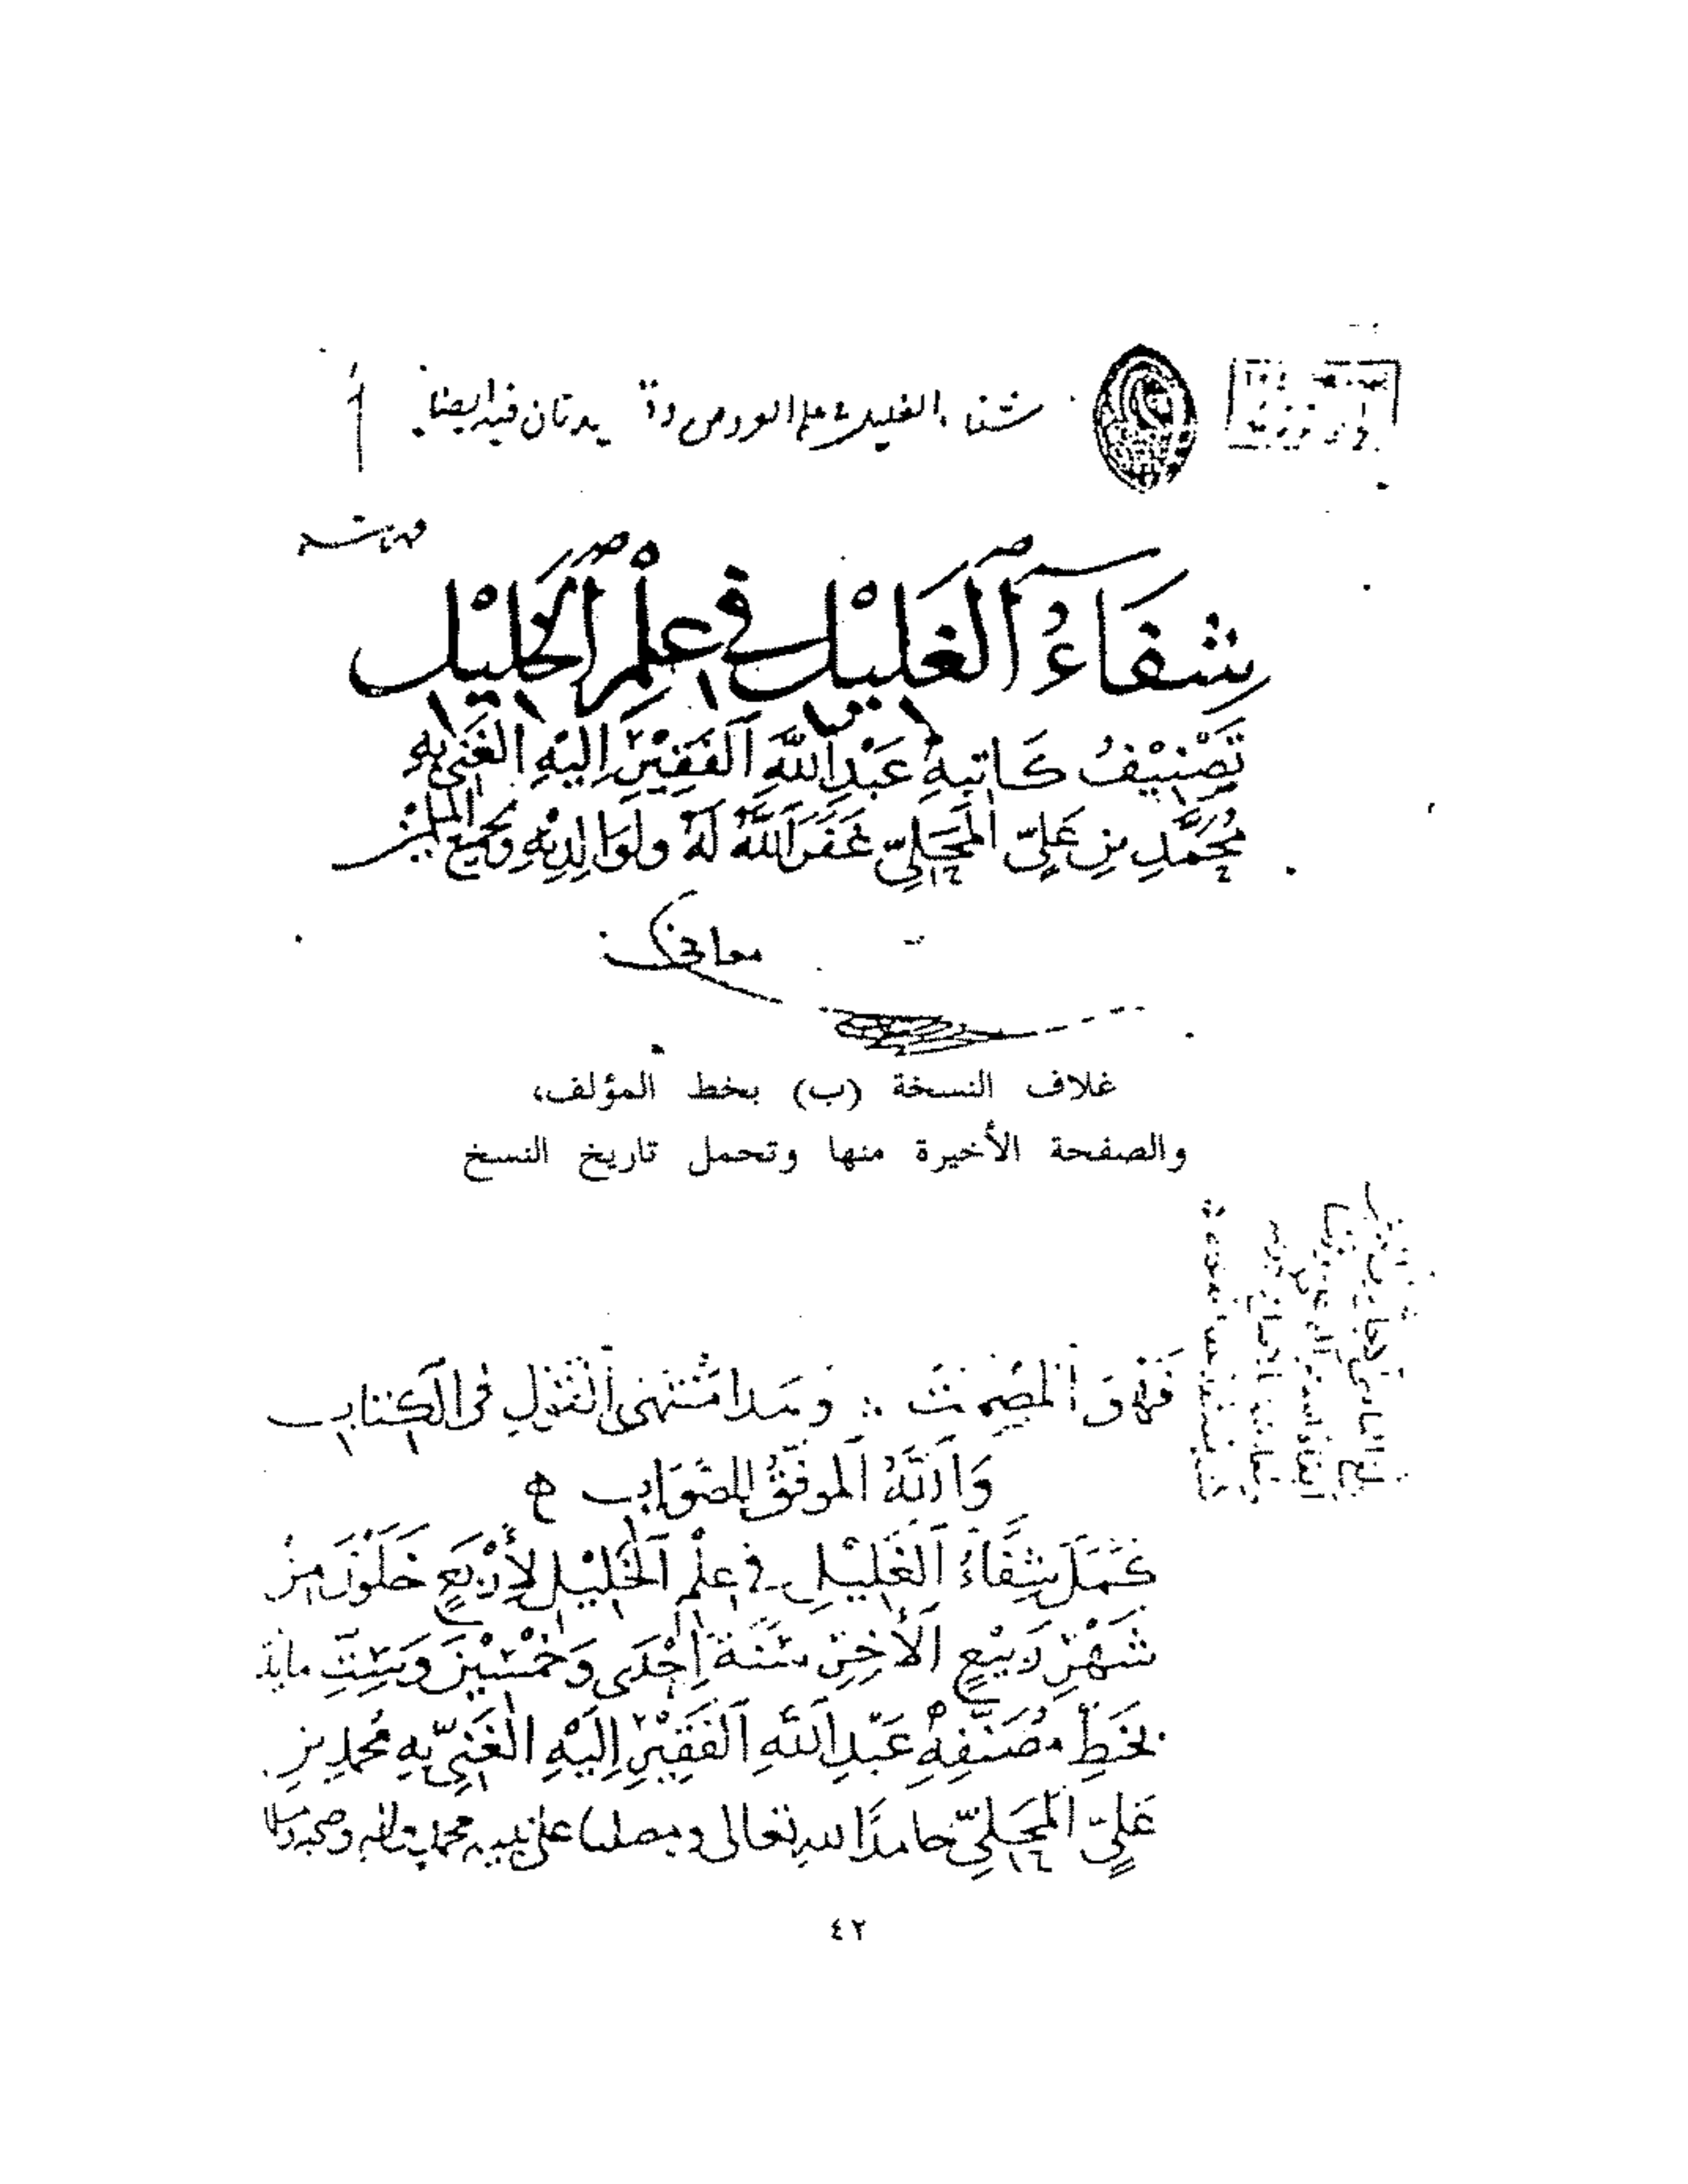 شفاء الغليل في علم العروض فيه ايضا
شِفَاءُ ٱلْغَلِيْلِ فِي عِلْمِ ٱلْخَلِيْلِ
تَصْنِيْفُ كَاتِبِهِ عَبْدِ ٱللَّهِ ٱلْفَقِيْرِ إِلَيْهِ ٱلْغَنِيِّ بِهِ
مُحَمَّدِ بنِ عَلِيٍّ ٱلْمَحَلِّيِّ غَفَرَ ٱللَّهُ لَهُ وَلِوَالِدَيْهِ وَلِجَمِيعِ المسلمين
غلاف النسخة (ب) بخط المؤلف،
والصفحة الأخيرة منها وتحمل تاريخ النسخ
فَهْوَ ٱلْمُصْمَتُ ∴ وهذا مُنْتَهَى ٱلْقَوْلِ في الكتاب
وَٱللَّهُ ٱلْمُوَفِّقُ لِلصَّوَابِ ه
كَمَلَ شِفَاءُ ٱلْغَلِيْلِ فِي عِلْمِ ٱلْخَلِيْلِ لِأَرْبَعٍ خَلَوْنَ مِنْ
شَهْرِ رَبِيْعٍ ٱلْآخِرِ سَنَةَ إِحْدَى وَخَمْسِيْنَ وَسِتِّ مايةٍ
بِخَطِّ مُصَنِّفِهِ عَبْدِ ٱللَّهِ ٱلْفَقِيْرِ إِلَيْهِ ٱلْغَنِيِّ بِهِ مُحَمَّدِ بنِ
عَلِيٍّ ٱلْمَحَلِّيِّ حامدًا لله تعالى ومصليا على نبيه محمد وآله وصحبه ومسلما
٤٢